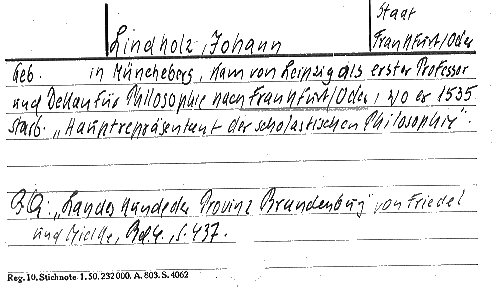 Staat
Lindholz, Johann Frankfurt/Oder
Geb. in Müncheberg, kam von Leipzig als erster Professor
und Dekan für Philosophie nach Frankfurt/Oder, wo er 1535
starb. „Hauptrepräsentant der scholastischen Philosophie".
BQ: „Landeskunde der Provinz Brandenburg" von Friedel
und Mielke, Bd. 4, S. 437.
Reg. 10. Stichnote. 1. 50. 232000. A. 803. S. 4062